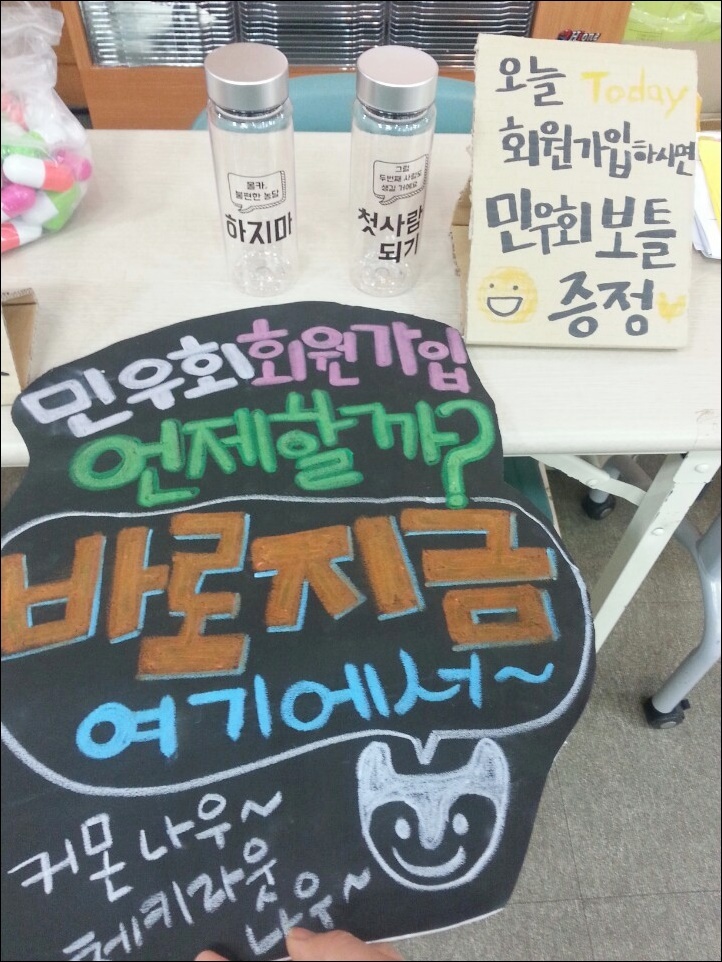 몰카,
불편한 농담
하지마
그럼
두번째 사람도
생길 거예요
첫사람
되기
오늘 Today
회원가입하시면
민우회 보틀
증정
민우회 회원가입
언제할까?
바로지금
여기에서~
커몬 나우~
체키라웃
나우~